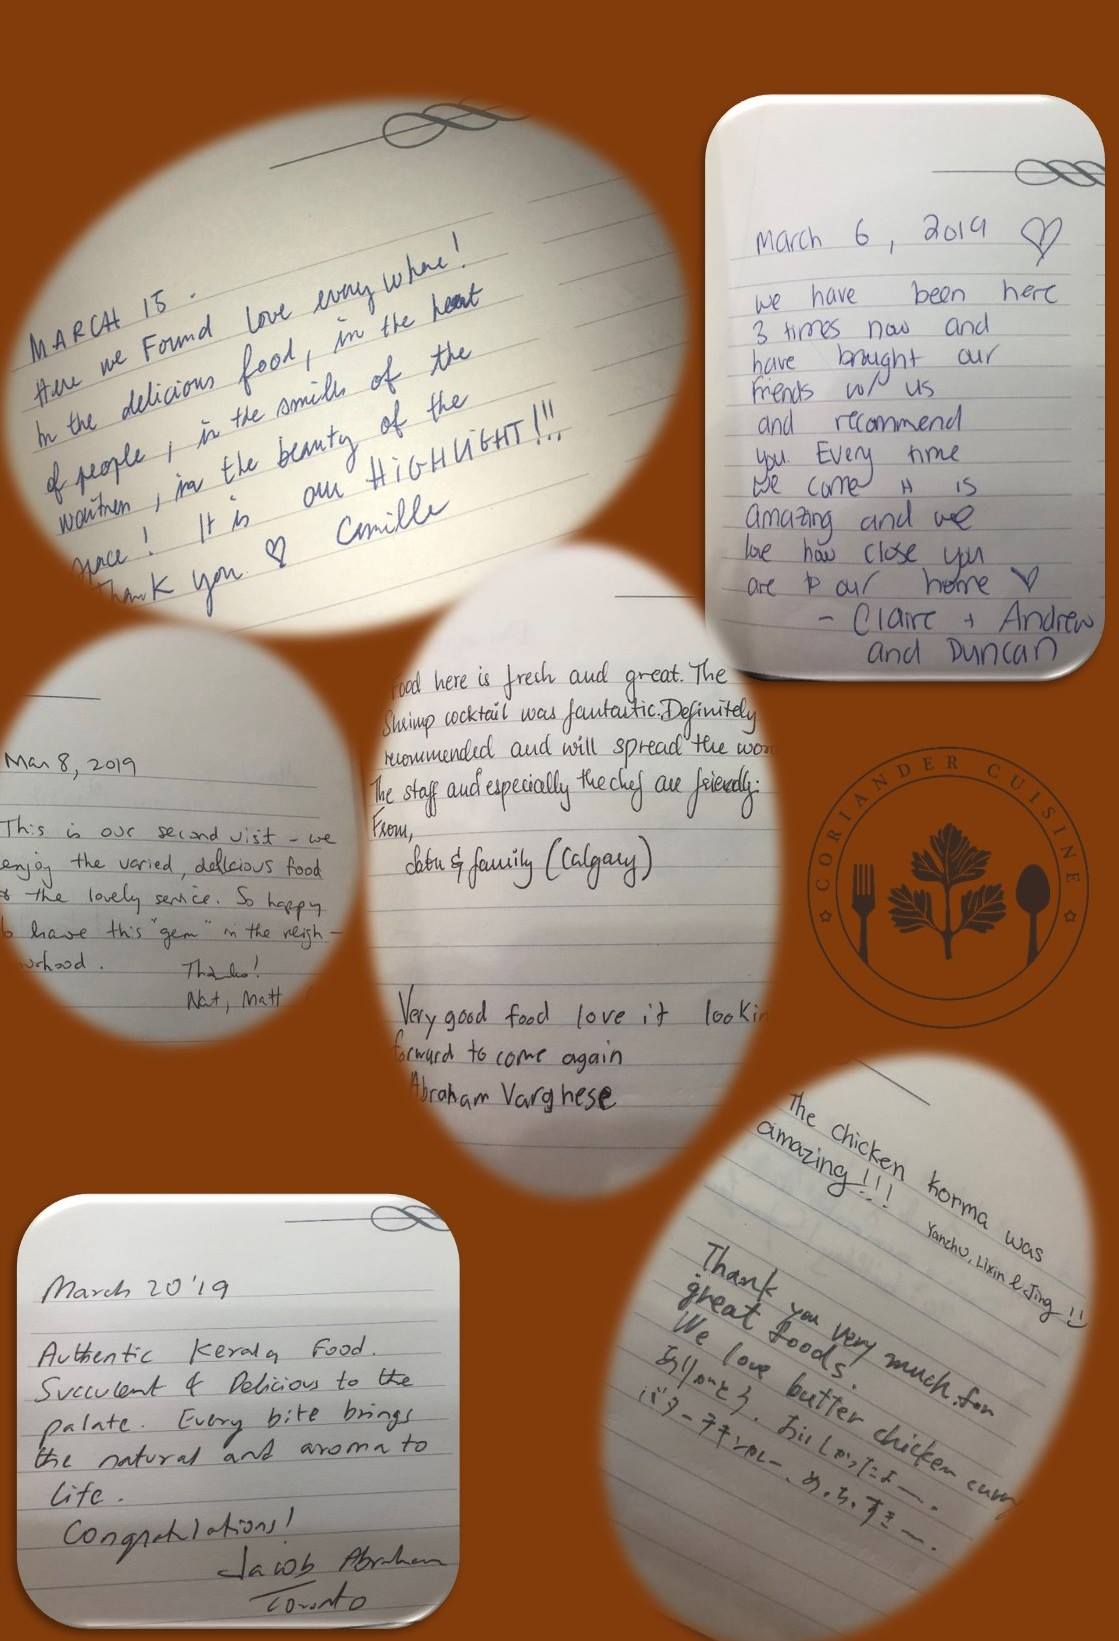 MARCH 15.
Here we Found love every where!
In the delicious food, in the heart
of people, in the smiles of the
waitress, in the beauty of the
place! It is our HIGHLIGHT!!!
Thank you ♡ Camille
March 6, 2019 ♡
we have been here
3 times now and
have brought our
friends w/ us
and recommend
you. Every time
we come it is
amazing and we
love how close you
are to our home ♡
- Claire + Andrew
and Duncan
Mar 8, 2019
This is our second visit - we
enjoy the varied, delicious food
& the lovely service. So happy
to have this "gem" in the neigh-
ourhood.
Thanks!
Nat, Matt
Food here is fresh and great. The
Shrimp cocktail was fantastic. Definitely
recommended and will spread the wor
The staff and especially the chef are friendly.
From,
& family (Calgary)
Very good food love it lookin
forward to come again
Abraham Varghese
CORIANDER CUISINE
The chicken korma was
amazing!!!
Yanzhu, Lixin & Jing !!
Thank you very much for
great foods.
We love butter chicken curry
ありがとう. おいしかったよー.
バターチキンカレー、めっちゃすきー.
March 20'19
Authentic Kerala Food.
Succulent & Delicious to the
palate. Every bite brings
the natural and aroma to
life.
Congratulations!
Jacob Abraham
Toronto